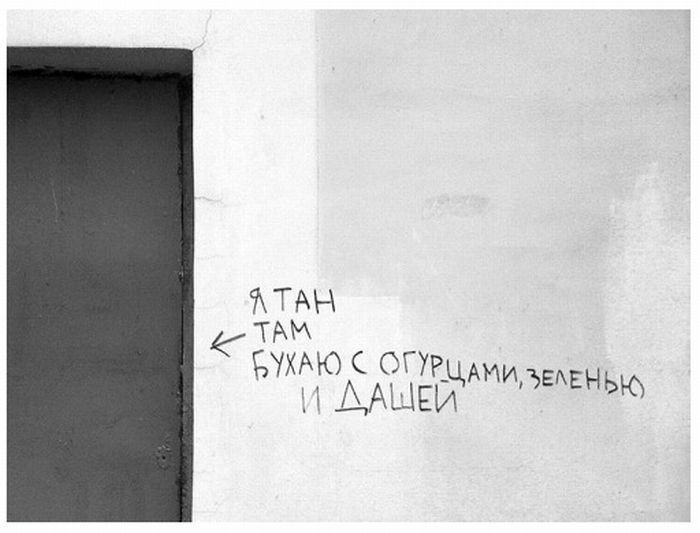 Я ТАН
ТАМ
БУХАЮ С ОГУРЦАМИ, ЗЕЛЕНЬЮ
И ДАШЕЙ